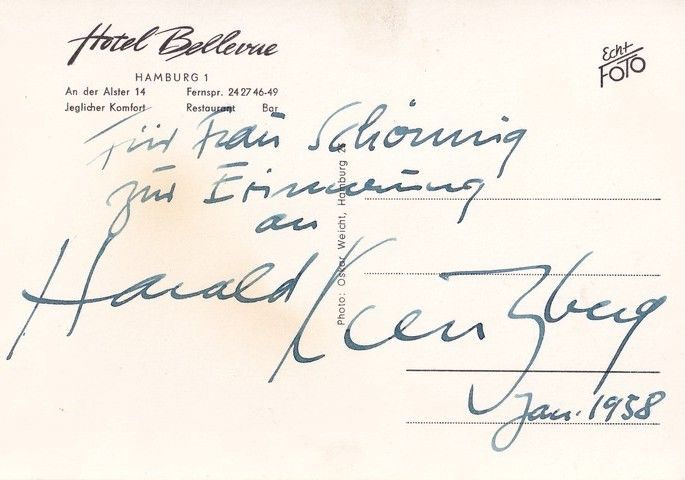 Hotel Bellevue
HAMBURG 1
An der Alster 14 Fernspr. 24 27 46-49
Jeglicher Komfort Restaurant Bar
Echt
FOTO
Für Frau Schönnig
zur Erinnerung
an
Harald Kreutzberg
Jan. 1958
Photo: Oskar Weicht, Hamburg 26